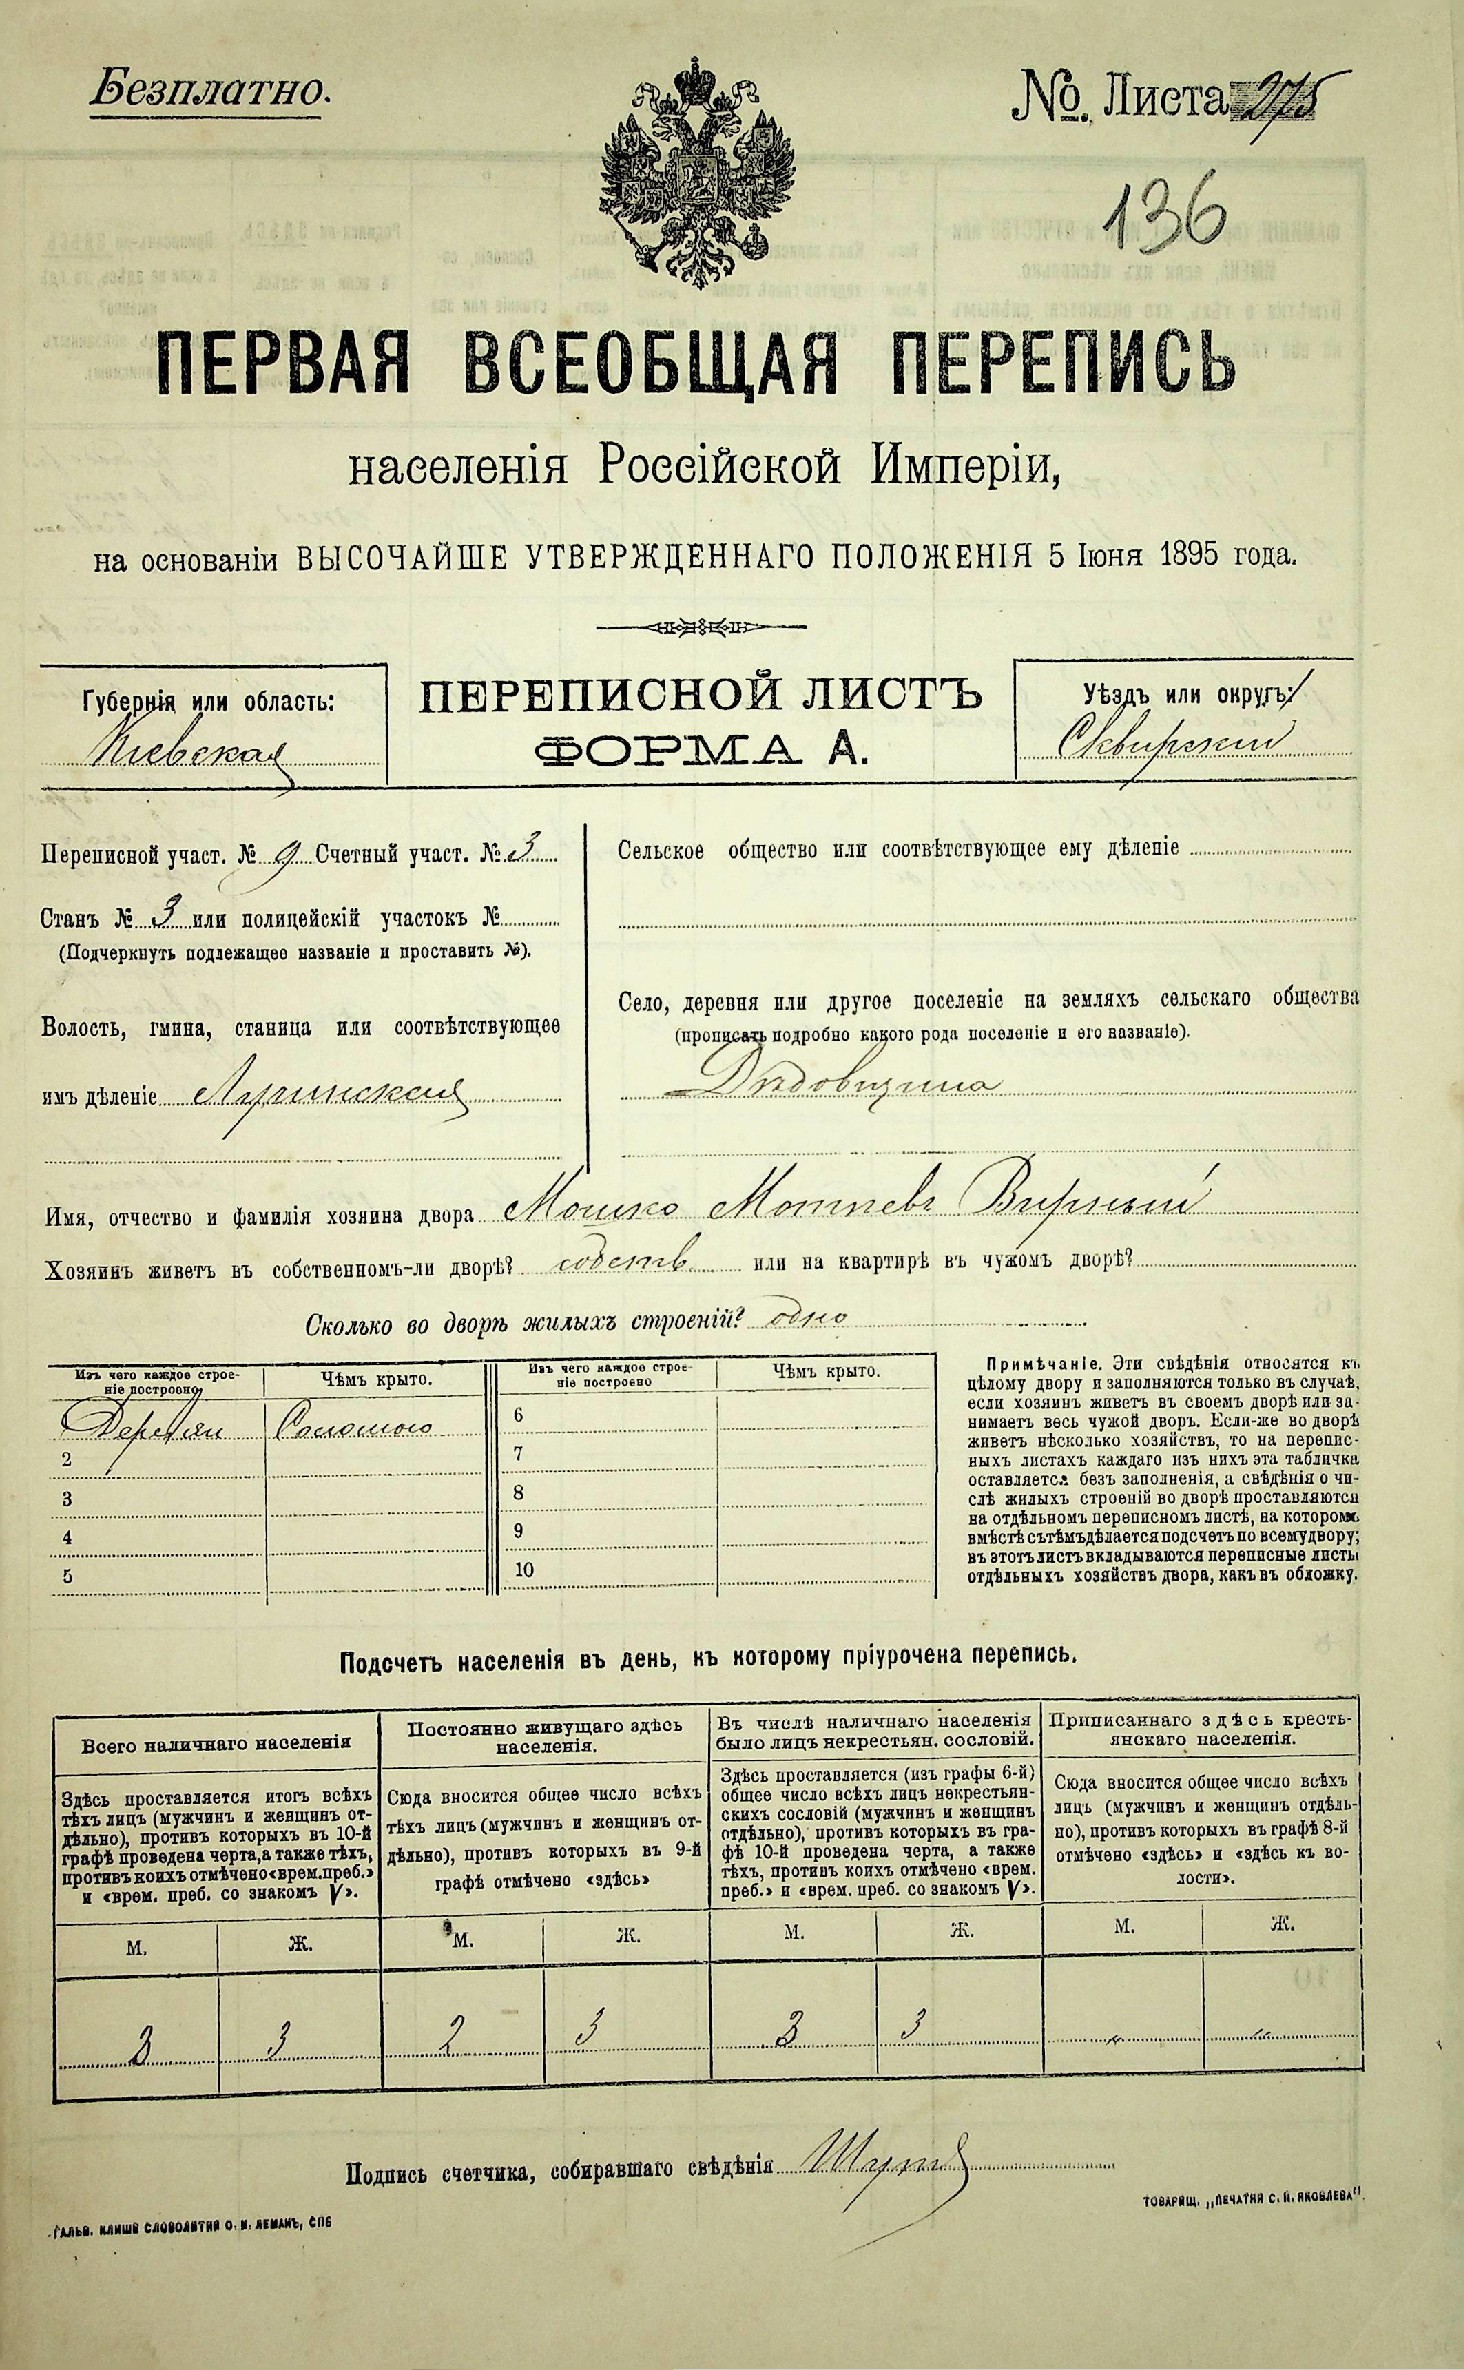 Безплатно.
№. Листа 275
136
ПЕРВАЯ ВСЕОБЩАЯ ПЕРЕПИСЬ
населенія Россійской Имперіи,
на основаніи ВЫСОЧАЙШЕ УТВЕРЖДЕННАГО ПОЛОЖЕНІЯ 5 Іюня 1895 года.
Губернія или область:
Кіевская
ПЕРЕПИСНОЙ ЛИСТЪ
ФОРМА А.
Уѣздъ или округъ:
Сквирскій
Переписной участ. № 9 Счетный участ. № 3
Станъ № 3 или полицейскій участокъ №
(Подчеркнуть подлежащее названіе и проставить №).
Волость, гмина, станица или соотвѣтствующее
имъ дѣленіе
Сельское общество или соотвѣтствующее ему дѣленіе
Село, деревня или другое поселеніе на земляхъ сельскаго общества
(прописать подробно какого рода поселеніе и его названіе).
Дѣдовщина
Имя, отчество и фамилія хозяина двора Мошко Мотіевъ Вирный
Хозяинъ живетъ въ собственномъ-ли дворѣ? собств или на квартирѣ въ чужомъ дворѣ?
Сколько во дворѣ жилыхъ строеній? одно
Изъ чего каждое строе-
ніе построено
Чѣмъ крыто.
Деревян Соломою
2
3
4
5
Изъ чего каждое строе-
ніе построено
Чѣмъ крыто.
6
7
8
9
10
Примѣчаніе. Эти свѣдѣнія относятся къ
цѣлому двору и заполняются только въ случаѣ,
если хозяинъ живетъ въ своемъ дворѣ или за-
нимаетъ весь чужой дворъ. Если-же во дворѣ
живетъ нѣсколько хозяйствъ, то на перепис-
ныхъ листахъ каждаго изъ нихъ эта табличка
оставляется безъ заполненія, а свѣдѣнія о чи-
слѣ жилыхъ строеній во дворѣ проставляются
на отдѣльномъ переписномъ листѣ, на которомъ
вмѣстѣ съ тѣмъ дѣлается подсчетъ по всему двору;
въ этотъ листъ вкладываются переписные листы
отдѣльныхъ хозяйствъ двора, какъ въ обложку.
Подсчетъ населенія въ день, къ которому пріурочена перепись.
Всего наличнаго населенія
Здѣсь проставляется итогъ всѣхъ
тѣхъ лицъ (мужчинъ и женщинъ от-
дѣльно), противъ которыхъ въ 10-й
графѣ проведена черта, а также тѣхъ,
противъ коихъ отмѣчено «врем. преб.»
и «врем. преб. со знакомъ V».
М. Ж.
3 3
Постоянно живущаго здѣсь
населенія.
Сюда вносится общее число всѣхъ
тѣхъ лицъ (мужчинъ и женщинъ от-
дѣльно), противъ которыхъ въ 9-й
графѣ отмѣчено «здѣсь»
М. Ж.
2 3
Въ числѣ наличнаго населенія
было лицъ некрестьян. сословій.
Здѣсь проставляется (изъ графы 6-й)
общее число всѣхъ лицъ некрестьян-
скихъ сословій (мужчинъ и женщинъ
отдѣльно), противъ которыхъ въ гра-
фѣ 10-й проведена черта, а также
тѣхъ, противъ коихъ отмѣчено «врем.
преб.» и «врем. преб. со знакомъ V».
М. Ж.
3 3
Приписаннаго здѣсь кресть-
янскаго населенія.
Сюда вносится общее число всѣхъ
лицъ (мужчинъ и женщинъ отдѣль-
но), противъ которыхъ въ графѣ 8-й
отмѣчено «здѣсь» и «здѣсь къ во-
лости».
М. Ж.
" "
Подпись счетчика, собиравшаго свѣдѣнія
ГАЛЬВ. КЛИШЕ СЛОВОЛИТНИ О. И. ЛЕМАНЪ, СПБ
ТОВАРИЩ. „ПЕЧАТНЯ С. П. ЯКОВЛЕВА".